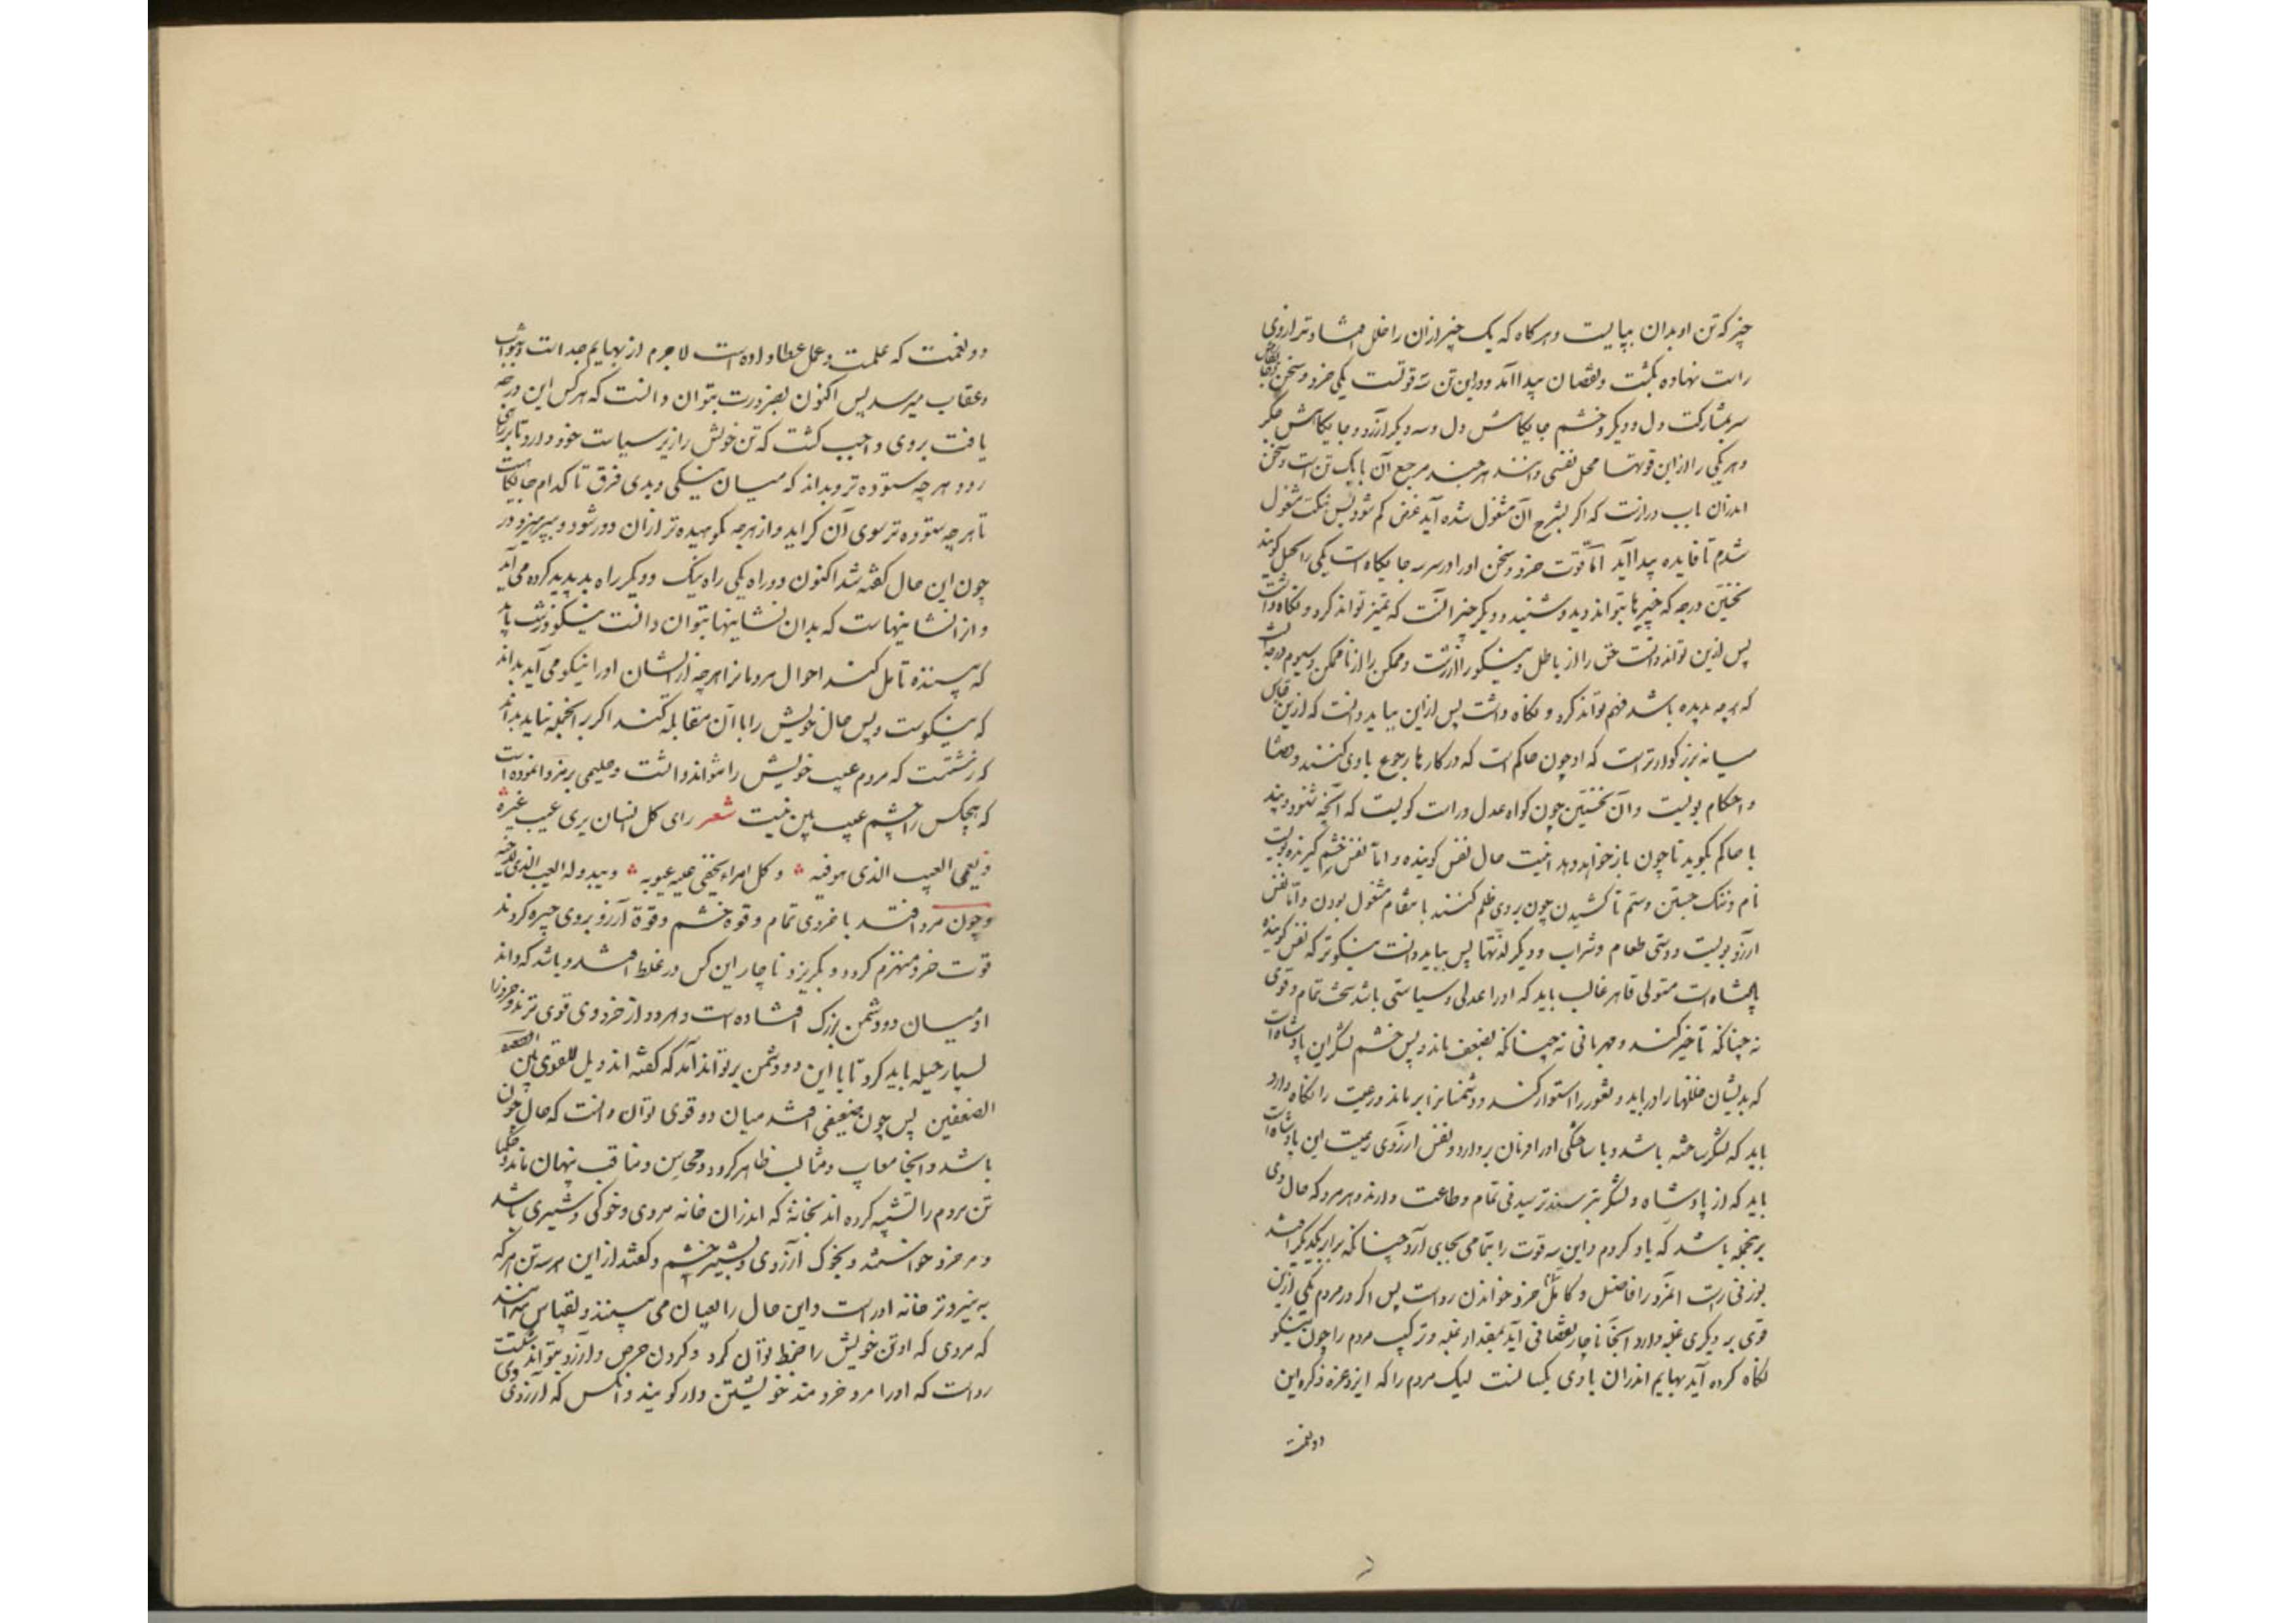 چیز که تن او بدان بپایست و هرگاه که یک چیز ازان را خلل افتاد ترازوی
راست نهاده بگشت و نقصان پیدا آمد و درین تن سه قوتست یکی خرد و سخن
سر بمشارکت دل و دیگر خشم جایگاش دل و سه دیگر آرزو و جایگاش جگر
و هر یکی را ازین قوتها محل نفسی دانند هر چند مرجع آن با یک تن است و سخن
اندران باب درازست که اگر بشرح آن مشغول شده آید غرض گم شود پس بنکت مشغول
شدم تا فایده پیدا آید اما قوت خرد و سخن او را در سر سه جایگاه است یکی را تخیل گویند
نخستین درجه که چیزها بتواند دید و شنید و دیگر چیز آنست که تمیز تواند کرد و نگاه داشت
پس ازین تواند دانست حق را از باطل و نیکو را از زشت و ممکن را از ناممکن و سیوم درجه آنست
که هر چه بدیده باشد فهم تواند کرد و نگاه داشت پس ازین بباید دانست که ازین قیاس
میانه بزرگوارتر است که او چون حاکم است که در کارها رجوع با وی کنند و قضا
و احکام بویست و آن نخستین چون گواه عدل و راست گویست که آنچه شنود و بیند
با حاکم بگوید تا چون باز خواهد بدهد اینست حال نفس گوینده و اما نفس خشم گیرنده بویست
نام و ننگ جستن و ستم ناکشیدن چون بر وی ظلم کنند با نتقام مشغول بودن و اما نفس
آرزو بویست دوستی طعام و شراب و دیگر لذتها پس بباید دانست نیکوتر که نفس گوینده
پادشاه است متولی قاهر غالب باید که او را عدلی و سیاستی باشد سخت تمام و قوی
نه چنانکه تأخیر کند و مهربانی نه چنانکه بضعف ماند و پس خشم لشکر این پادشاه است
که بدیشان خللها را دریابد و ثغور را استوار کند و دشمنانرا برماند و رعیت را نگاه دارد
باید که لشکر ساخته باشد و با ساختگی او را فرمان بردارد و نفس آرزوی رعیت این پادشاه است
باید که از پادشاه و لشکر بترسند ترسیدنی تمام و طاعت دارند و هر مرد که حال وی
برینجمله باشد که یاد کردم و این سه قوت را بتمامی بجای آرد چنانکه برابر یکدیگر افتد
بوزنی راست آنمرد را فاضل و کامل خرد خواندن رواست پس اگر در مردم یکی ازین
قوی بر دیگری غلبه دارد آنجا ناچار نقصانی آید بمقدار غلبه و ترکیب مردم را چون نیکو
نگاه کرده آید بهایم اندران با وی یکسانست لیک مردم را که ایزد عزه ذکره این
دو نعمت
دو نعمت که علمست و عمل عطا داده است لاجرم از بهایم جداست و بثواب
و عقاب میرسد پس اکنون بضرورت بتوان دانست که هر کس این درجه
یافت بر وی واجب گشت که تن خویش را زیر سیاست خود دارد تا بر راهی
رود هر چه ستوده تر و بداند که میان نیکی و بدی فرق تا کدام جایگاهست
تا هر چه ستوده تر سوی آن گراید و از هر چه نکوهیده تر ازان دور شود و بپرهیزد و در
چون این حال گفته شد اکنون دو راه یکی راه نیک و دیگر راه بد پدید کرده می آید
و از آن نشانیهاست که بدان نشانیها بتوان دانست نیکو و زشت باید
که بیننده تأمل کند احوال مردمانرا هر چه از ایشان او را نیکو می آید بداند
که نیکوست و پس حال خویش را با آن مقابله کند اگر برانجمله نیاید بداند
که زشتست که مردم عیب خویش را نتواند دانست و حکیمی برمز وا نموده است
که هیچکس را چشم عیب بین نیست شعر رای کل انسان یری عیب غیره
و یعمی العیب الذی هو فیه و کل امراء یخفی علیه عیوبه و یبدو له العیب الذی لاخیه
و چون مرد افتد با خردی تمام و قوه خشم و قوة آرزو بر وی چیره گردند
قوت خرد منهزم گردد و بگریزد ناچار این کس در غلط افتد و باشد که داند
او میان دو دشمن بزرگ افتاده است و هر دو از خرد وی قوی ترند و خرد را
بسیار حیله باید کرد تا با این دو دشمن بر تواند آمد که گفته اند ویل للقوی بین
الضعفین پس چون ضعیفی افتد میان دو قوی توان دانست که حال چون
باشد و آنجا معایب و مثالب ظاهر گردد و محاسن و مناقب پنهان ماند و حکما
تن مردم را تشبیه کرده اند بخانهٔ که اندران خانه مردی و خوکی و شیری باشد
و مرد خرد خواستند و بخوک آرزوی و بشیر خشم و گفتند ازین هر سه تن هر که
به نیروتر خانه او راست و این حال را بعیان می بینند و بقیاس می دانند
که مردی که او تن خویش را ضبط تواند کرد و گردن حرص و آرزو بتواند شکست
رواست که او را مرد خردمند خویشتن دار گویند و آنکس که آرزوی وی